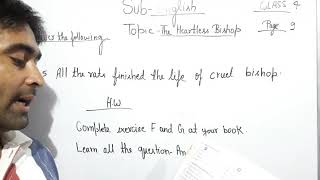 Sub- English
CLASS 4
Topic - The Heartless Bishop
Page 9
the following
All the rats finished the life of cruel bishop.
H.W
Complete exercise F and G at your book
Learn all the question- An